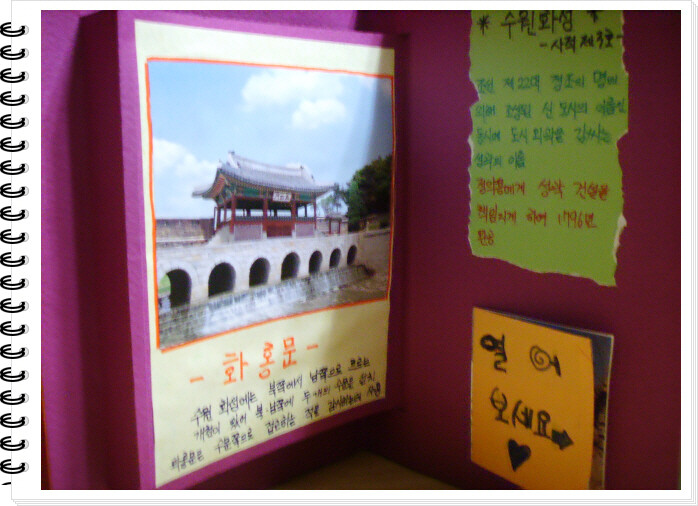 - 화홍문 -
수원 화성에는 북쪽에서 남쪽으로 흐르는
개천이 있어 북·남쪽에 두 개의 수문을 설치
화홍문은 수문쪽으로 감시하는
* 수원화성 *
- 사적 제3호 -
조선 제22대 정조의 명에
의해 조성된 신 도시의 이름인
동시에 도시 외곽을 감싸는
성곽의 이름
정약용에게 성곽 건설을
책임지게 하여 1796년
완공
열어
보세요